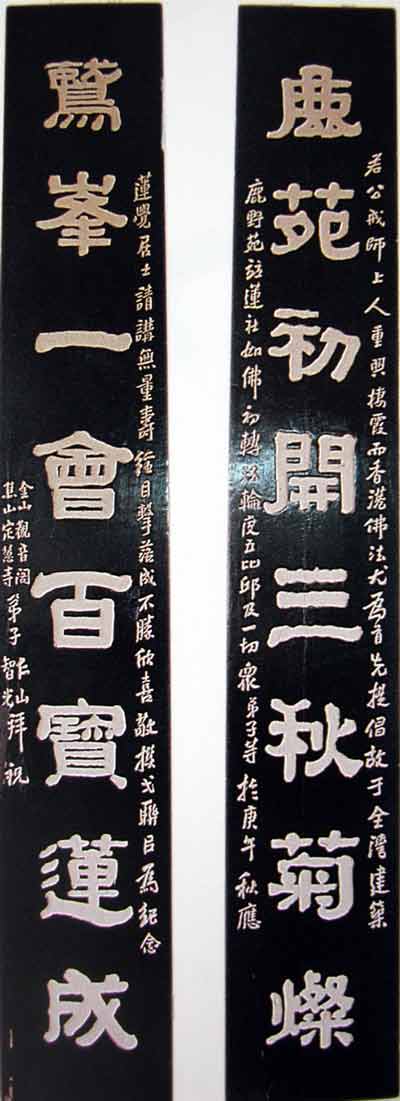 若公戒師上人重興棲霞而香港佛法尤為首先提倡故于全灣建築
鹿苑初開三秋菊燦
鹿野苑蓮社如佛初轉法輪度五比邱及一切眾弟子等於庚午秋應
蓮覺居士請講無量壽經目擊落成不勝欣喜敬撰弌聯㠯為紀念
鷲峯一會百寶蓮成
金山觀音閣
焦山定慧寺
弟子
仁山
智光
拜祝